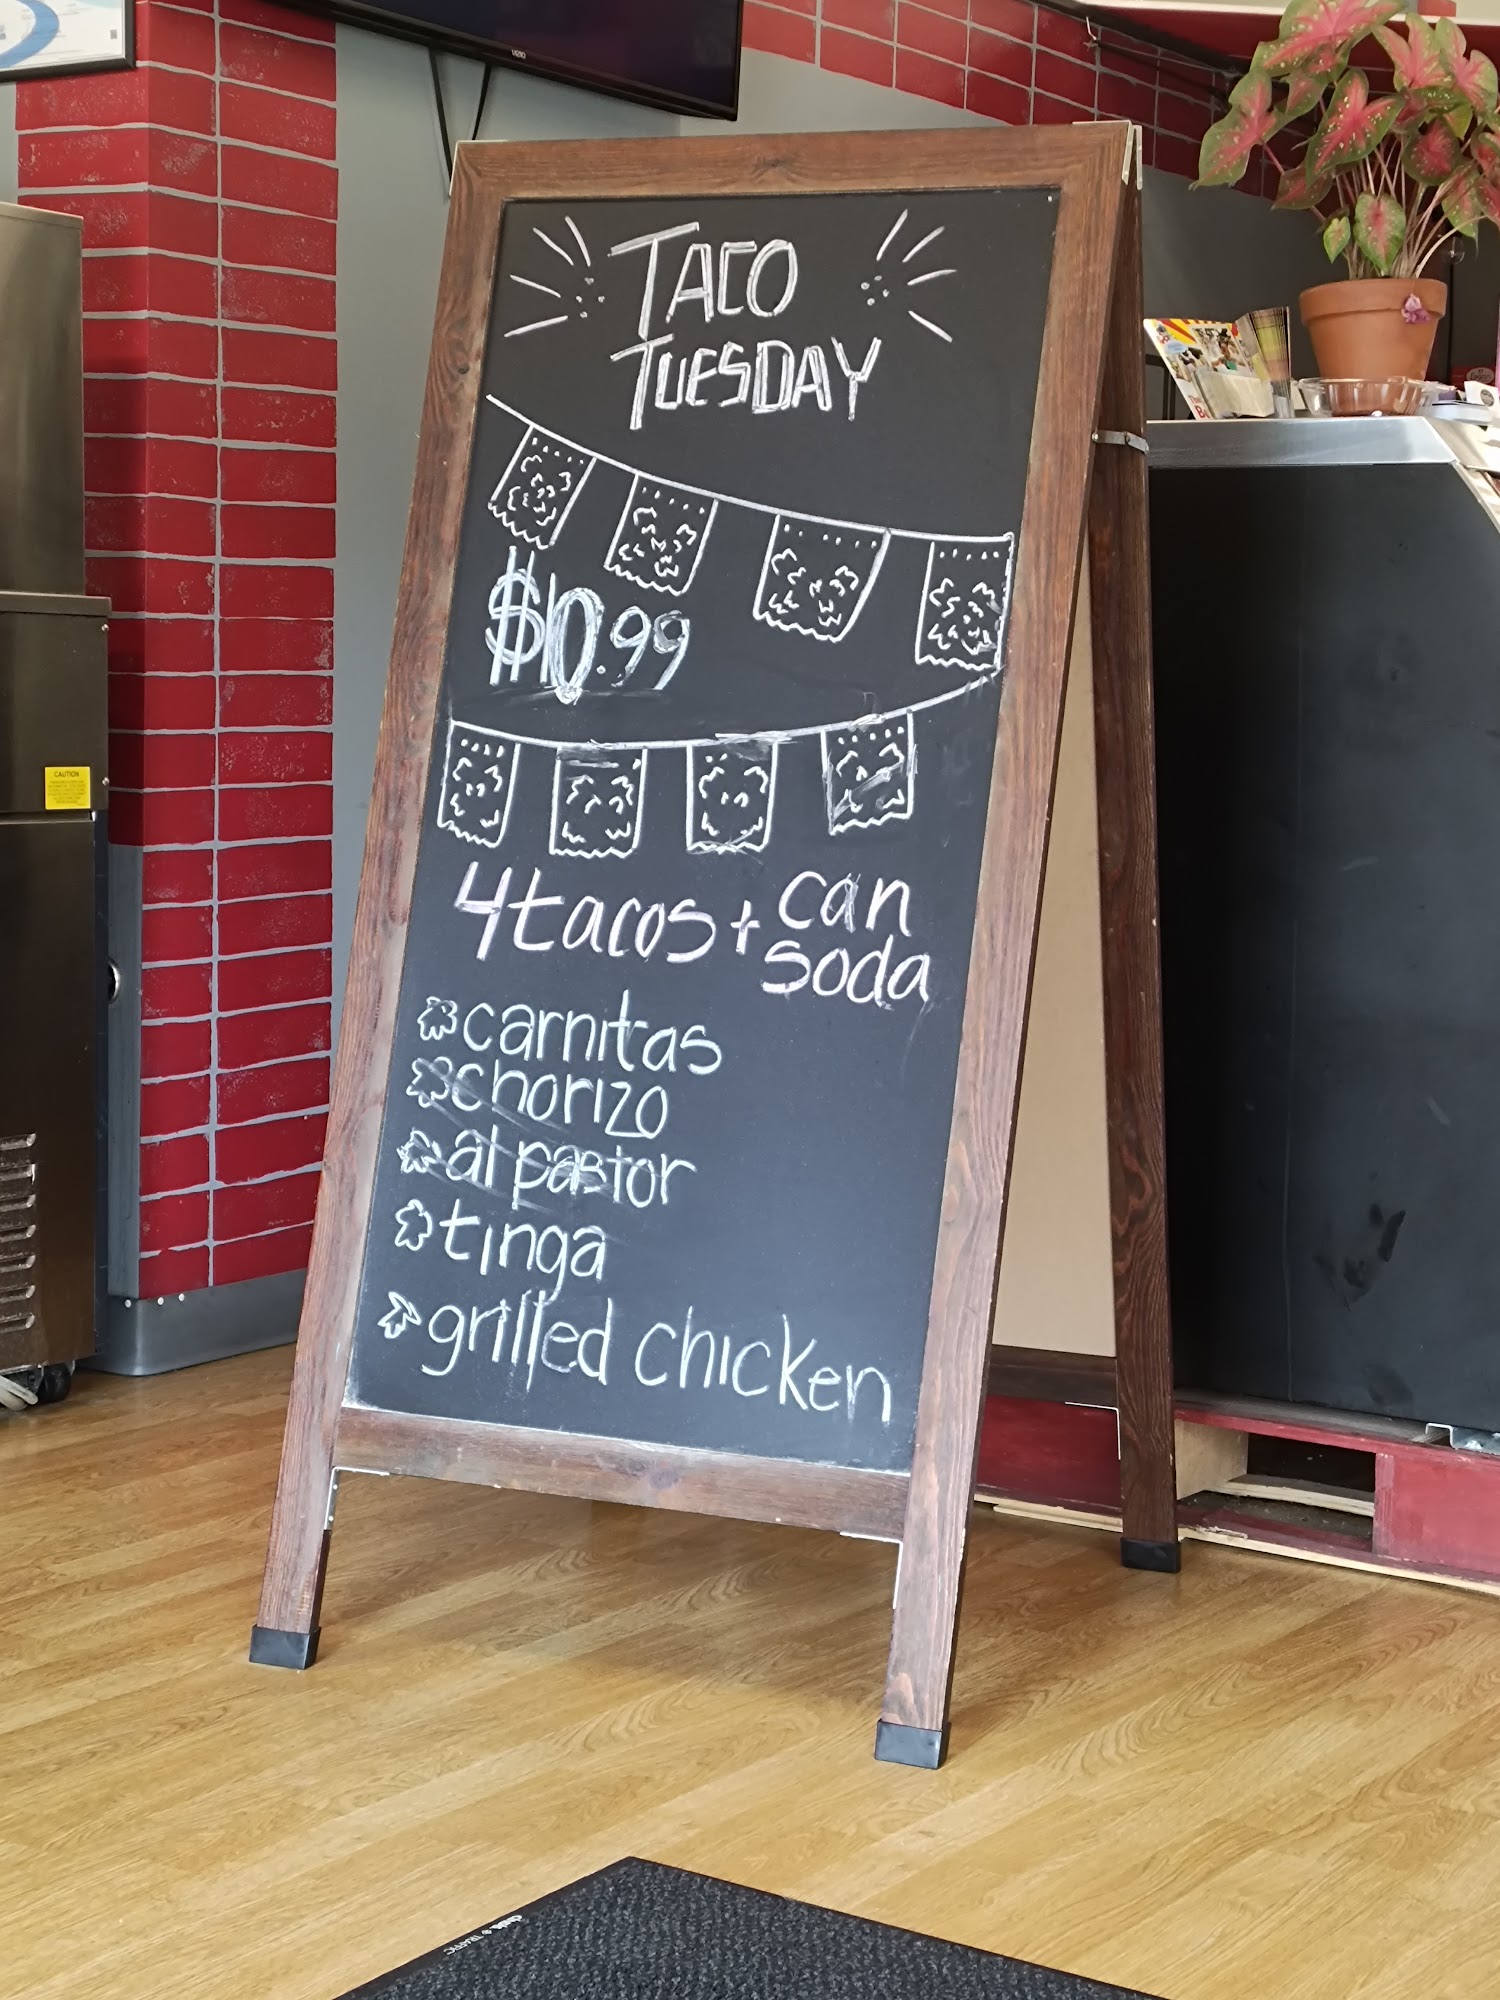 VIZIO
TACO
TUESDAY
$10.99
4 tacos + can
soda
carnitas
chorizo
al pastor
tinga
grilled chicken
CAUTION